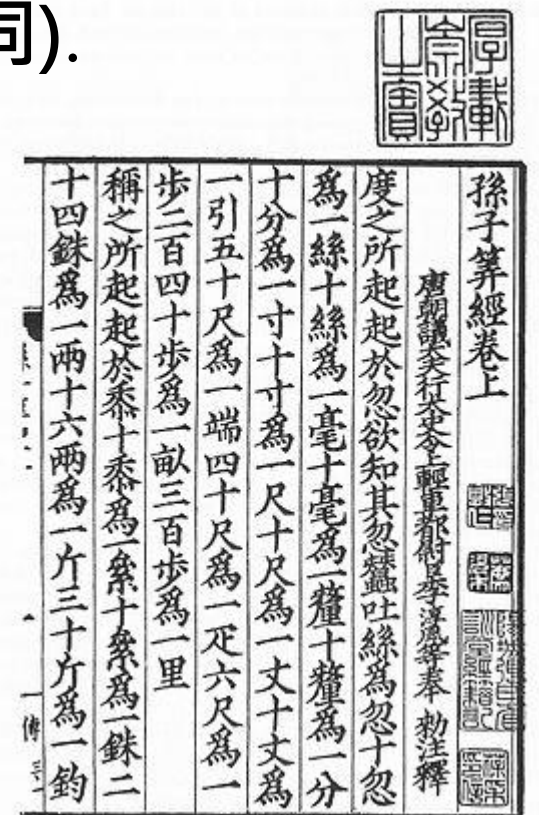 同).
厚載
崇教
之寶
孫子筭經卷上
唐朝議大夫行太史令上輕車都尉臣李淳風等奉 勑注釋
度之所起起於忽欲知其忽蠶吐絲爲忽十忽
爲一絲十絲爲一毫十毫爲一釐十釐爲一分
十分爲一寸十寸爲一尺十尺爲一丈十丈爲
一引五十尺爲一端四十尺爲一疋六尺爲一
步二百四十步爲一畝三百步爲一里
稱之所起起於黍十黍爲一絫十絫爲一銖二
十四銖爲一兩十六兩爲一斤三十斤爲一鈞